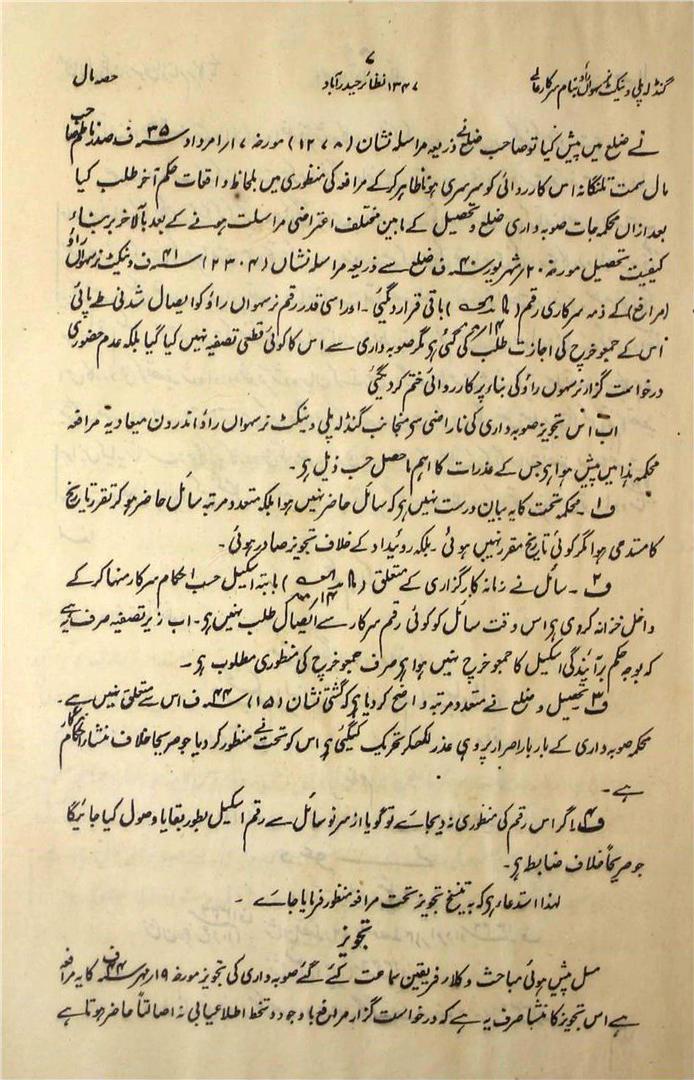 ۷
گنڈلہ پلی وینکٹ نرسہواں راؤ بنام سرکار عالی ۱۳۴۷ نظائر حیدرآباد حصہ مال
نے ضلع میں پیش کیا تو صاحب ضلع نے ذریعہ مراسلہ نشان (۱۲۷۸) مورخہ ۱۷؍ امرداد ۳۵ ف صدر ناظم صاحب
مال سمت تلنگانہ اس کارروائی کو سرسری ہونا ظاہر کرکے مرافعہ کی منظوری میں بلحاظ واقعات حکم آخر طلب کیا
بعد ازاں محکمہ جات صوبہ داری ضلع و تحصیل کے مابین مختلف اعتراضی مراسلت ہونے کے بعد بالآخر بربناء
کیفیت تحصیل مورخہ ۲۰؍ شہریور ۴۰ ف ضلع سے ذریعہ مراسلہ نشان (۲۳۰۴) ۴۱ ف وینکٹ نرسہواں راؤ
(مرافع) کے ذمہ سرکاری رقم باقی قرار دیگئی ۔ اور اسی قدر رقم نرسہواں راؤ کو ایصال شدنی طے پائی
اس کے جمع خرچ کی اجازت طلب کی گئی ہے مگر صوبہ داری سے اس کا کوئی قطعی تصفیہ نہیں کیا گیا بلکہ عدم حضوری
درخواست گزار نرسہوں راؤ کی بناء پر کارروائی ختم کردیگئی
اب اس تجویز صوبہ داری کی ناراضی سے منجانب گنڈلہ پلی وینکٹ نرسہواں راؤ اندرون میعاد یہ مرافعہ
محکمہ ہذا میں پیش ہوا ہے جس کے عذرات کا اہم ماحصل حسب ذیل ہے۔
ف۱ ۔ محکمہ تحت کا یہ بیان درست نہیں ہے کہ سائل حاضر نہیں ہوا بلکہ متعدد مرتبہ سائل حاضر ہو کر تقرر تاریخ
کا مستدعی ہوا مگر کوئی تاریخ مقرر نہیں ہوئی ۔ بلکہ روئیداد کے خلاف تجویز صادر ہوئی۔
ف۲ ۔ سائل نے زمانہ کارگزاری کے متعلق بابتہ اسکیل حسب احکام سرکار منہا کرکے
داخل خزانہ کردی ہے اس وقت سائل کو کوئی رقم سرکار سے ایصال طلب نہیں ہے۔ اب زیر تصفیہ صرف یہ ہے
کہ بوجہ حکم برآیندگی اسکیل کا جمع خرچ نہیں ہوا ہے صرف جمع خرچ کی منظوری مطلوب ہے ۔
ف۳ تحصیل و ضلع نے متعدد مرتبہ واضح کردیا ہے کہ گشتی نشان (۱۵) ۴۴ ف اس سے متعلق نہیں ہے ۔
محکمہ صوبہ داری کے بار بار اصرار پر وہی عذر لکھکر تحریک کیگئی ہے اس کو تحت نے منظور کردیا جو صریحاً خلاف منشاء احکام سرکار
ہے ۔
ف۴ ۔ اگر اس رقم کی منظوری نہ دیجائے تو گویا از سر نو سائل سے رقم اسکیل بطور بقایا وصول کیا جائیگا
جو صریحاً خلاف ضابطہ ہے۔
لہذا استدعاء ہے کہ بہ تنسیخ تجویز تحت مرافعہ منظور فرمایا جائے ۔
تجویز
مسل پیش ہوئی مباحث وکلاء فریقین سماعت کئے گئے صوبہ داری کی تجویز مورخہ ۱۹؍ مہر ۴۴ ف کا یہ مرافعہ
ہے اس تجویز کا منشا صرف یہ ہے کہ درخواست گزار مرافع باوجود دستخط اطلاعیابی نہ اصالتاً حاضر ہوتا ہے